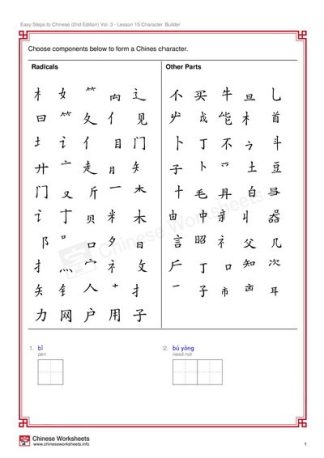 Easy Steps to Chinese (2nd Edition) Vol. 3 - Lesson 15 Character Builder
Choose components below to form a Chines character.
Radicals
Other Parts
木 女 ⺮ 向 辶
不 买 牛 旦 乚
日 ⺮ 夂 亻 见
土 讠 亻 目 门
卜 丁 不 斗
廾 亠 走 月 矢
子 卜 土 豆
门 又 斤 一
十 毛 自
讠 忄 贝 木
由 中 亲 器
阝 口 夕 日
言 昭 礻 父 几
扌 灬 宀 礻 攵
尸 丁 口 知 次
矢 钅 人 扌
一 子 市 齿 耳
力 网 户 用 子
1. bǐ
pen
2. bú yòng
need not
Chinese Worksheets
Chinese Worksheets
www.chineseworksheets.info
1